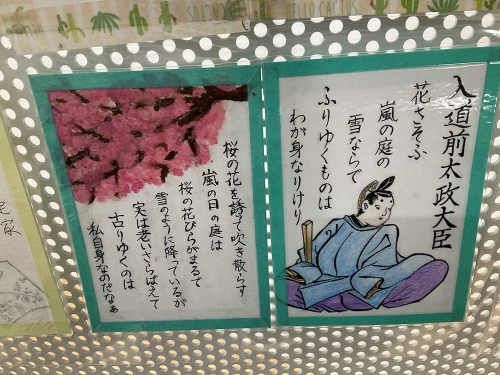 HELLO CACTUS
入道前太政大臣
花さそふ
嵐の庭の
雪ならで
ふりゆくものは
わが身なりけり
桜の花を誘て吹き散らす
嵐の日の庭は
桜の花びらがまるで
雪のように降っているが
実は老いさらばえて
古りゆくのは
私自身なのだなぁ